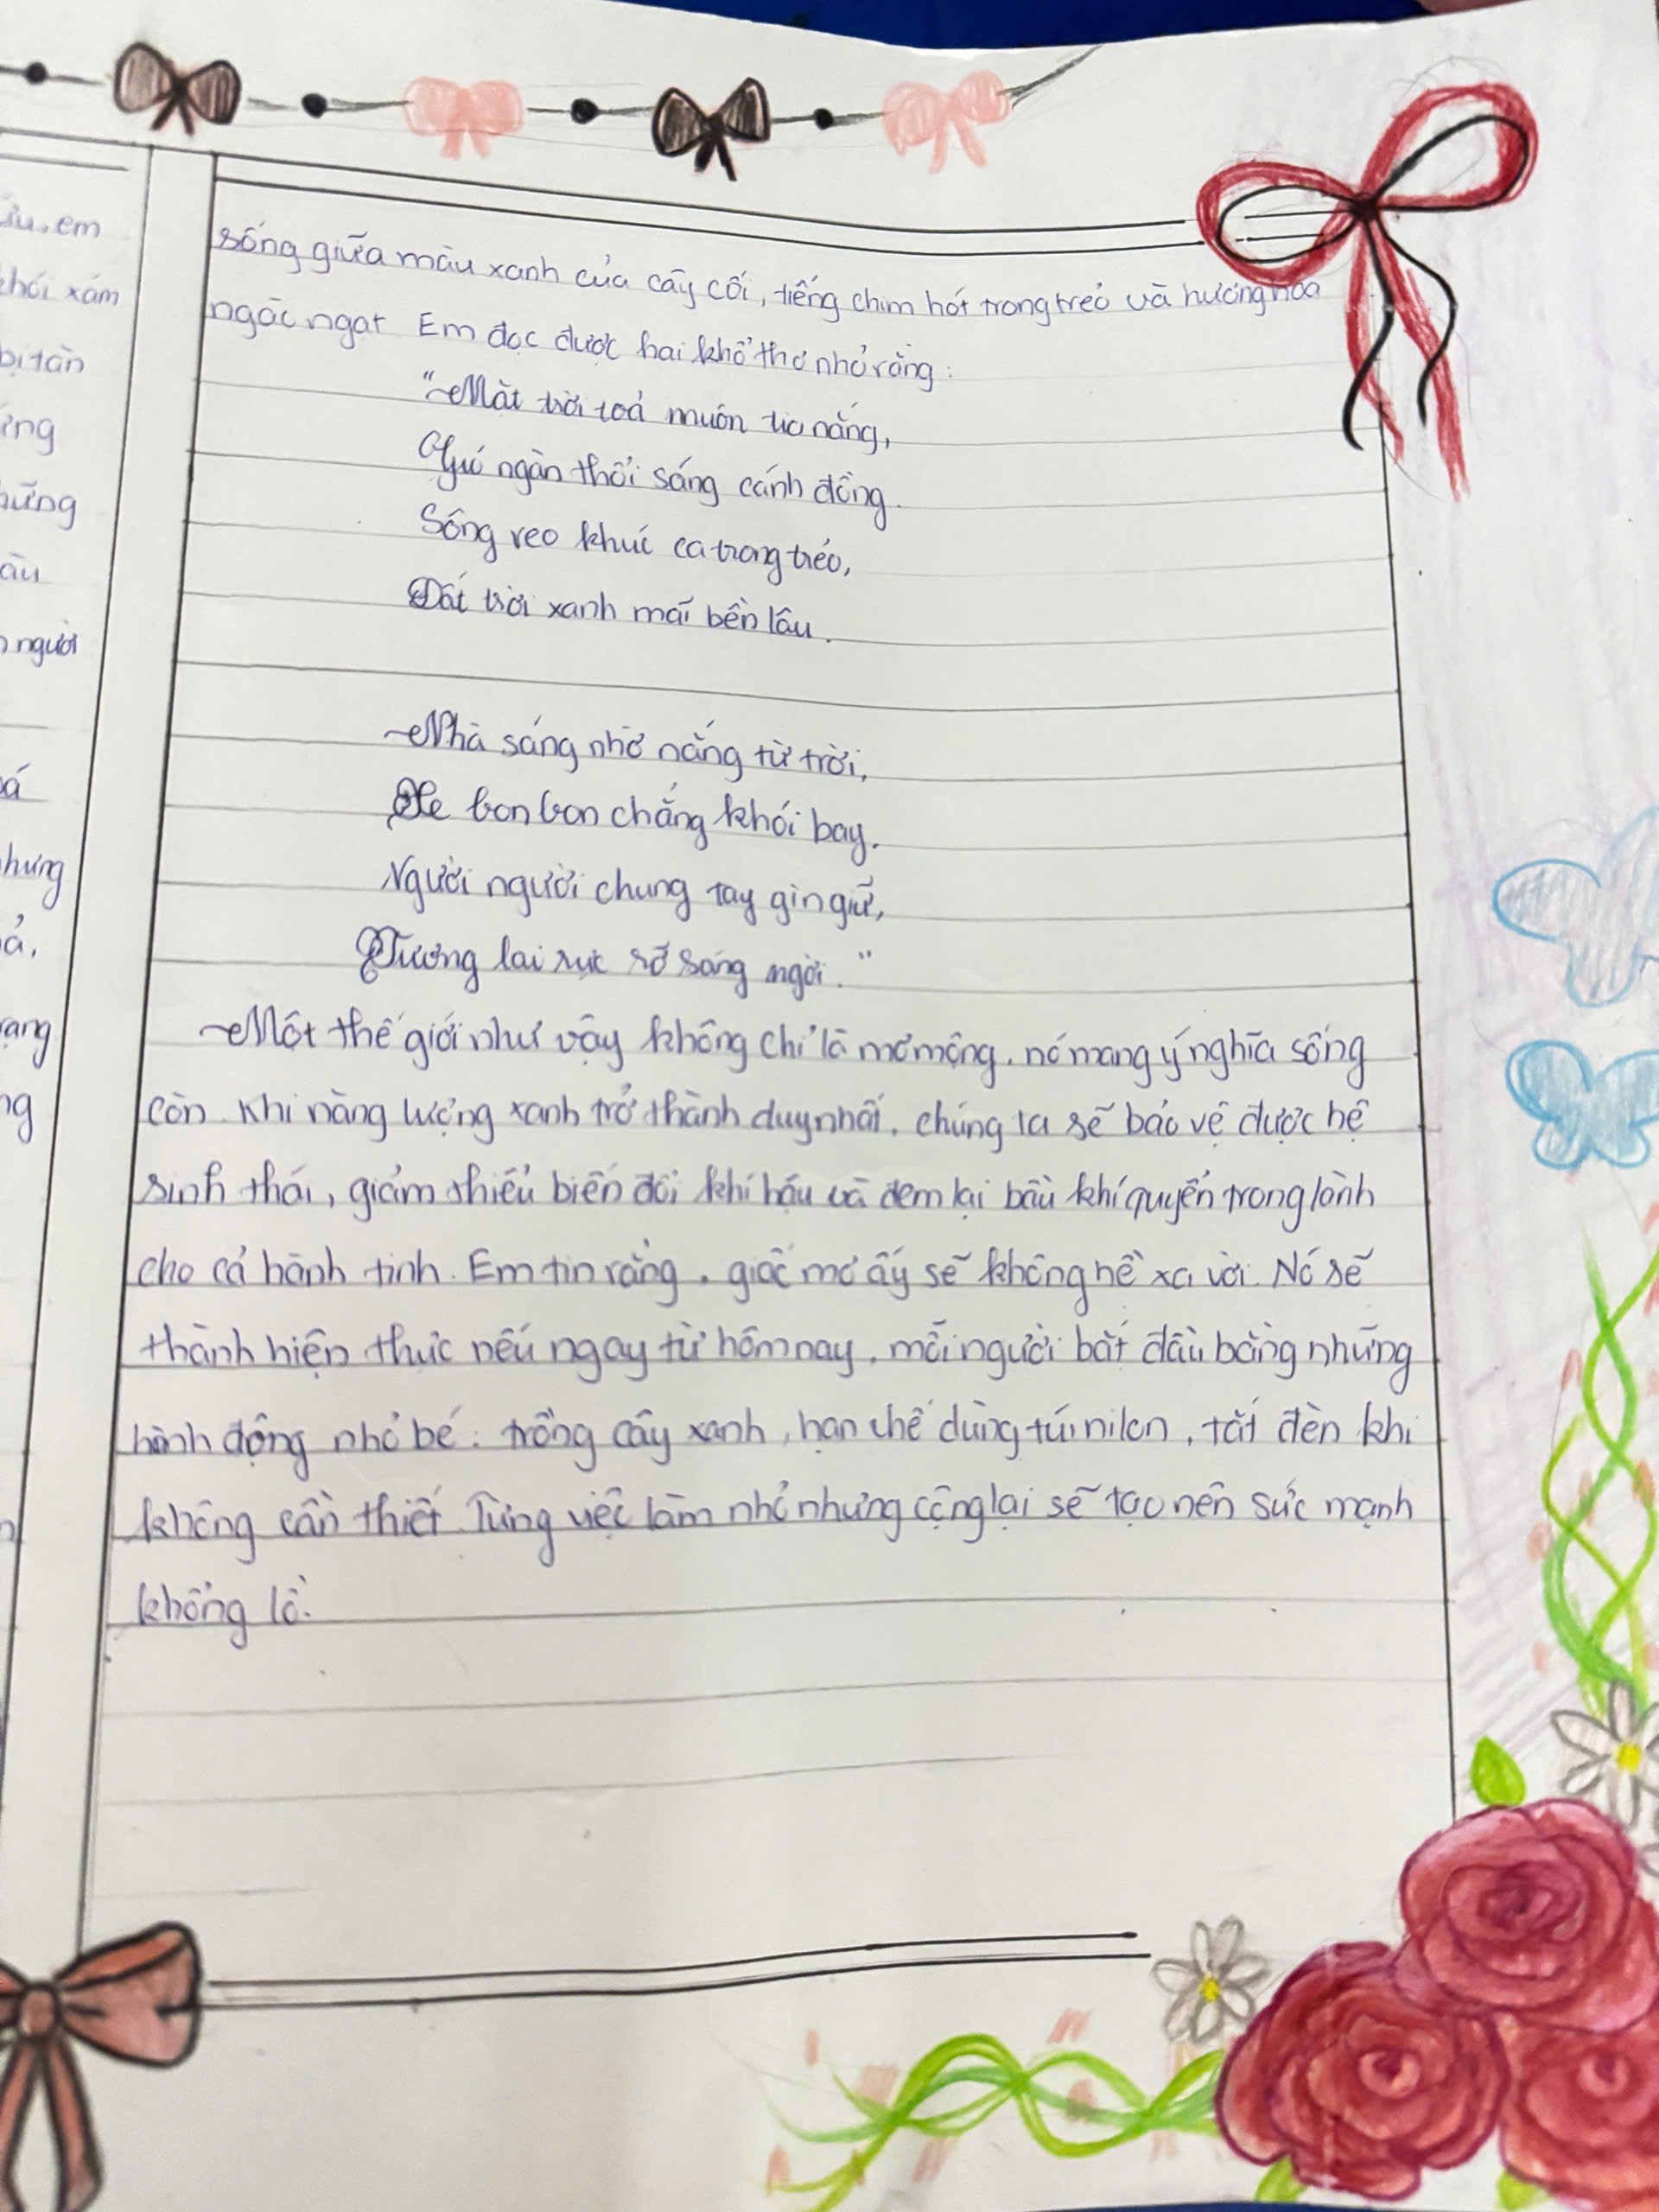 ửu, em
khói xám
bị tàn
ững
hững
àu
người
á
hưng
ả,
ạng
ng
n
sống giữa màu xanh của cây cối, tiếng chim hót trong trẻo và hương hoa
ngào ngạt Em đọc được hai khổ thơ nhỏ rằng:
"Mặt trời toả muôn tia nắng,
Gió ngàn thổi sáng cánh đồng.
Sông reo khúc ca trong trẻo,
Đất trời xanh mãi bền lâu.
Nhà sáng nhờ nắng từ trời,
Xe bon bon chẳng khói bay.
Người người chung tay gìn giữ,
Tương lai rực rỡ sáng ngời."
Một thế giới như vậy không chỉ là mơ mộng, nó mang ý nghĩa sống
còn. Khi năng lượng xanh trở thành duy nhất, chúng ta sẽ bảo vệ được hệ
sinh thái, giảm thiểu biến đổi khí hậu và đem lại bầu khí quyển trong lành
cho cả hành tinh. Em tin rằng, giấc mơ ấy sẽ không hề xa vời. Nó sẽ
thành hiện thực nếu ngay từ hôm nay, mỗi người bắt đầu bằng những
hành động nhỏ bé: trồng cây xanh, hạn chế dùng túi nilon, tắt đèn khi
không cần thiết. Từng việc làm nhỏ nhưng cộng lại sẽ tạo nên sức mạnh
khổng lồ.